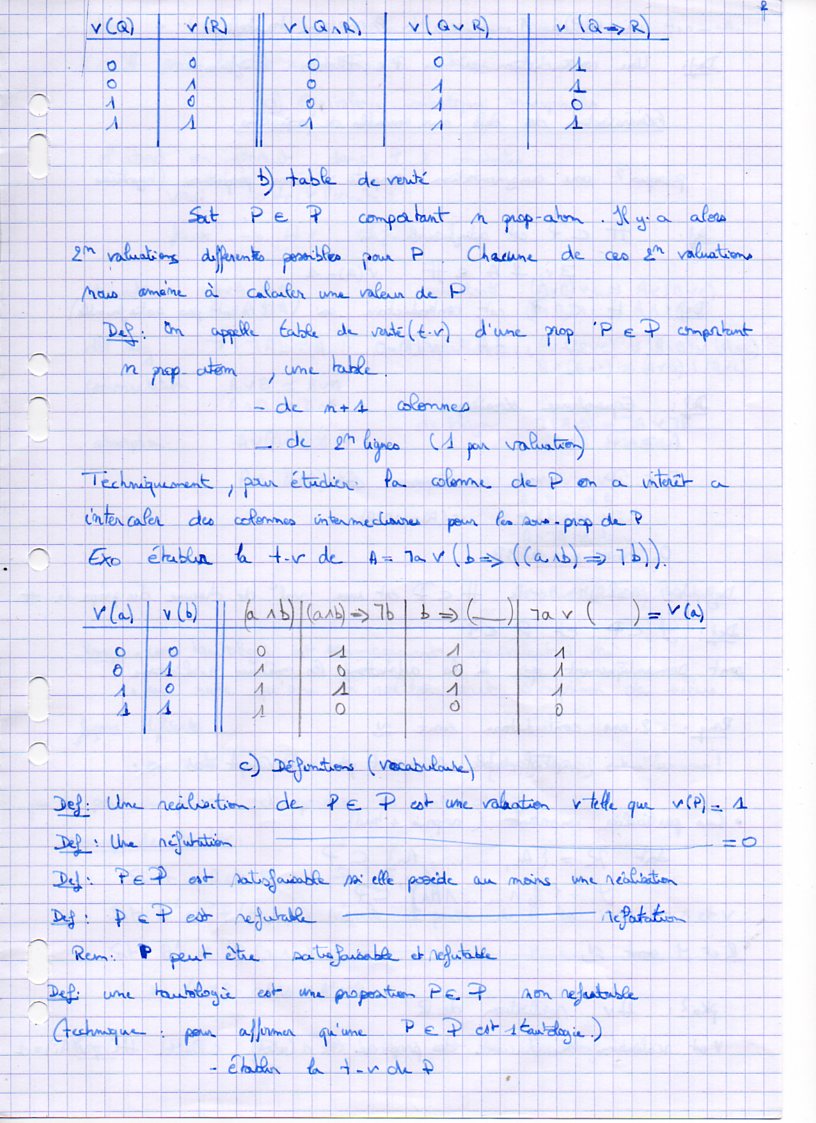 2
v(Q) v(R) v(Q∧R) v(Q∨R) v(Q⇒R)
0 0 0 0 1
0 1 0 1 1
1 0 0 1 0
1 1 1 1 1
b) table de verité
Soit P ∈ P comportant n prop-atom. Il y a alors
2ⁿ valuations differentes possibles pour P. Chacune de ces 2ⁿ valuations
nous amène à calculer une valeur de P
Def: On appelle table de verité (t.v) d'une prop P ∈ P comportant
n prop-atom, une table.
- de n+1 colonnes
- de 2ⁿ lignes (1 par valuation)
Techniquement, pour étudier la colonne de P on a intérêt a
intercaler des colonnes intermediaires pour les sous-prop de P
Exo établir la t-v de A = ¬a ∨ (b ⇒ ((a∧b) ⇒ ¬b)).
V(a) v(b) (a∧b) (a∧b)⇒¬b b⇒(__) ¬a ∨ ( ) = V(a)
0 0 0 1 1 1
0 1 1 0 0 1
1 0 1 1 1 1
1 1 1 0 0 0
c) Définitions (vocabulaire)
Def: Une réalisation de P ∈ P est une valuation v telle que v(P) = 1
Def: Une réfutation ———— = 0
Def: P ∈ P est satisfaisable si elle possède au moins une réalisation
Def: P ∈ P est refutable ———— refutation
Rem: P peut être satisfaisable et refutable
Def: une tautologie est une proposition P ∈ P non refutable
(technique : pour affirmer qu'une P ∈ P est 1 tautologie.)
- établir la t-v de P